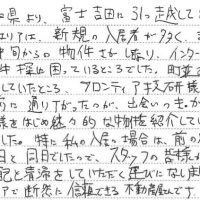 県より、富士吉田に引っ越して
エリアは、新規の入居者が多く、
中旬からの物件さがし
探しに困っているところでした。町並
していたところ、フロンティア技研様
に通りかかったのが、出会いのきっか
様をはじめ魅力的な物件を紹介してい
した。特に私の入居の場合は、前の
日と同日だったので、スタッフの皆様が
配と清掃をしていただく運びになしま
アで断然に信頼できる不動産屋さんです。